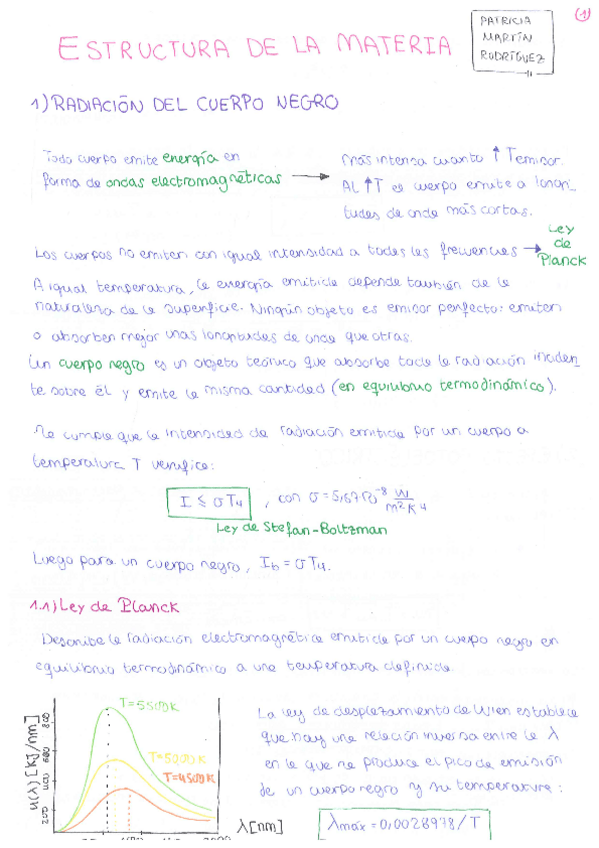 PATRICIA
MARTÍN
RODRÍGUEZ
1
ESTRUCTURA DE LA MATERIA
1) RADIACIÓN DEL CUERPO NEGRO
Todo cuerpo emite energía en
forma de ondas electromagnéticas →
más intensa cuanto ↑ Temisor.
AL ↑T el cuerpo emite a longi_
tudes de onda más cortas.
Los cuerpos no emiten con igual intensidad a todas las frecuencias → Ley de Planck
A igual temperatura, la energía emitida depende también de la
naturaleza de la superficie. Ningún objeto es emisor perfecto: emiten
o absorben mejor unas longitudes de onda que otras.
Un cuerpo negro es un objeto teórico que absorbe toda la radiación inciden_
te sobre él y emite la misma cantidad (en equilibrio termodinámico).
Se cumple que la intensidad de radiación emitida por un cuerpo a
temperatura T verifica:
I ≤ σT4 , con σ = 5,67·10⁻⁸ W/m²K⁴
Ley de Stefan-Boltzman
Luego para un cuerpo negro, Ib = σT4.
1.1) Ley de Planck
Describe la radiación electromagnética emitida por un cuerpo negro en
equilibrio termodinámico a una temperatura definida
T=5500K
T=5000K
T=4500K
u(λ) [kJ/nm]
λ [nm]
La ley de desplazamiento de Wien establece
que hay una relación inversa entre la λ
en la que se produce el pico de emisión
de un cuerpo negro y su temperatura:
λmáx = 0,0028978/T